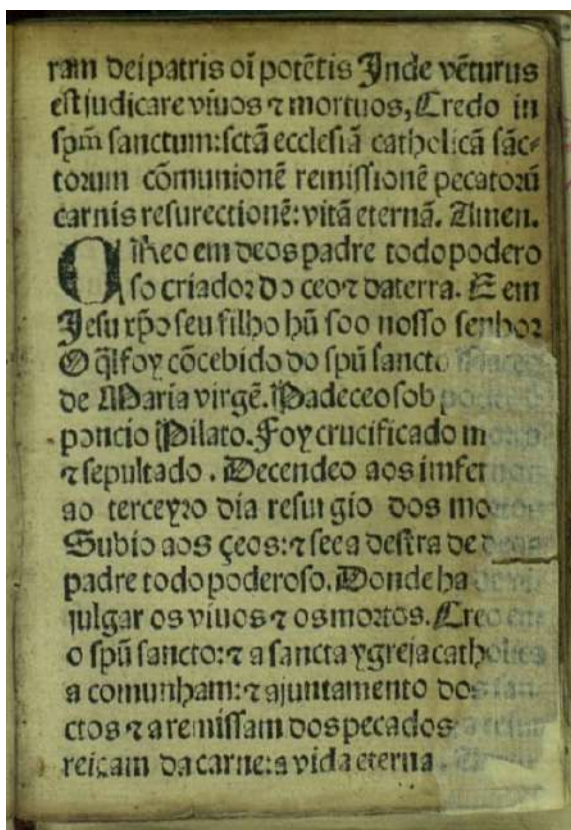 ram dei patris oı̃ potẽtis Inde vẽturus
est judicare viuos ⁊ mortuos, Credo in
spm̃ sanctum: sctã ecclesiã catholicã sãc⸗
torum cõmunionẽ remissionẽ pecatorũ
carnis resurectionẽ: vitã eternã. Amen.
CReo em deos padre todo podero
so criador do ceo ⁊ da terra. E em
Jesu xp̃o seu filho hũ soo nosso senhor
O q̃l foy cõcebido do spũ sancto
de Maria virgẽ. Padeceo sob
poncio Pilato. Foy crucificado
⁊ sepultado. Decendeo aos
ao terceyro dia resurgio dos
Subio aos çeos: ⁊ see a destra de deos
padre todo poderoso. Donde ha
julgar os viuos ⁊ os mortos. Creo em
o spũ sancto: ⁊ a sancta ygreja catholica
a comunham: ⁊ ajuntamento dos
ctos ⁊ a remissam dos pecados
reiçam da carne: a vida eterna.